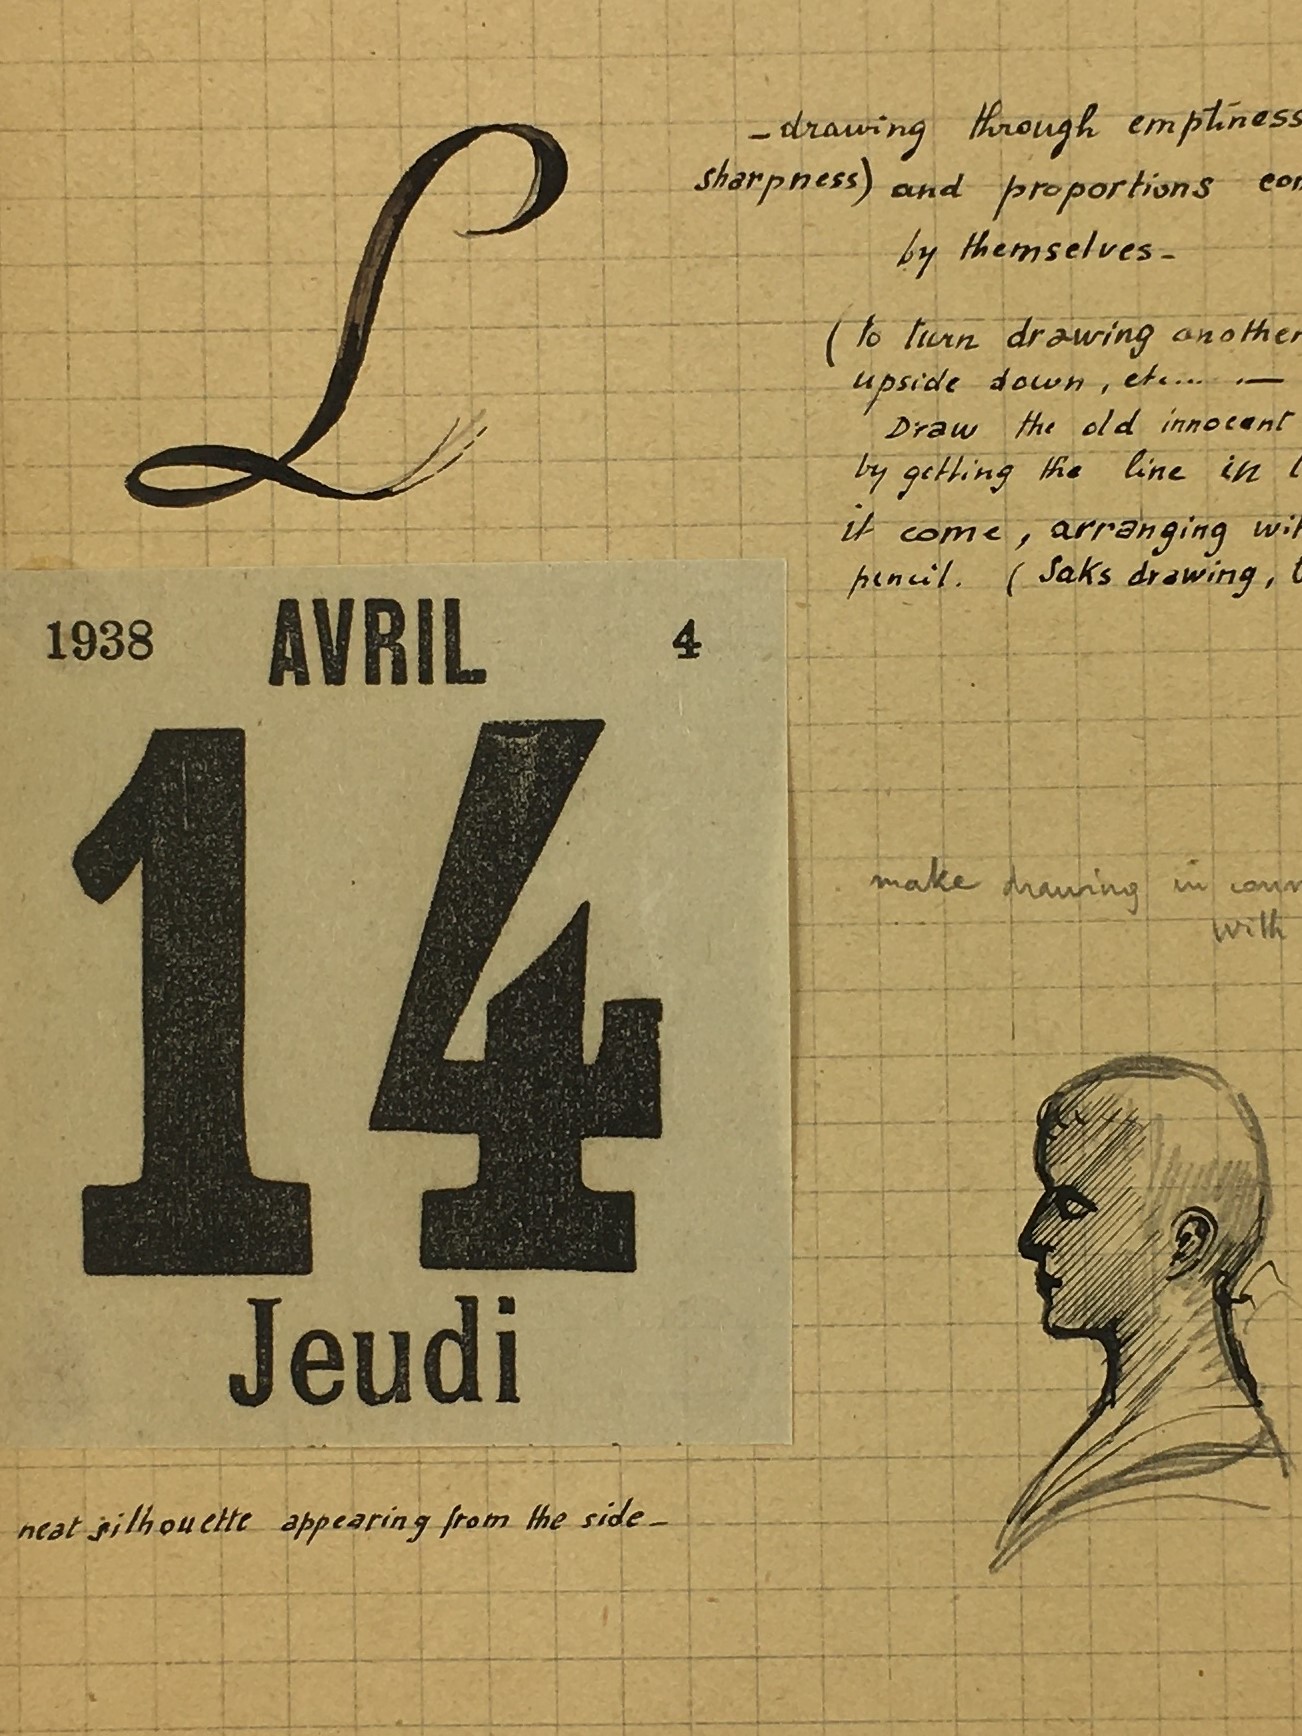 L
-drawing through emptiness
sharpness) and proportions
by themselves-
(to turn drawing another
upside down, etc.... .—
Draw the old innocent
by getting the line in
it come, arranging
pencil. (Saks drawing,
1938 AVRIL 4
14
Jeudi
make drawing in
with
neat silhouette appearing from the side-